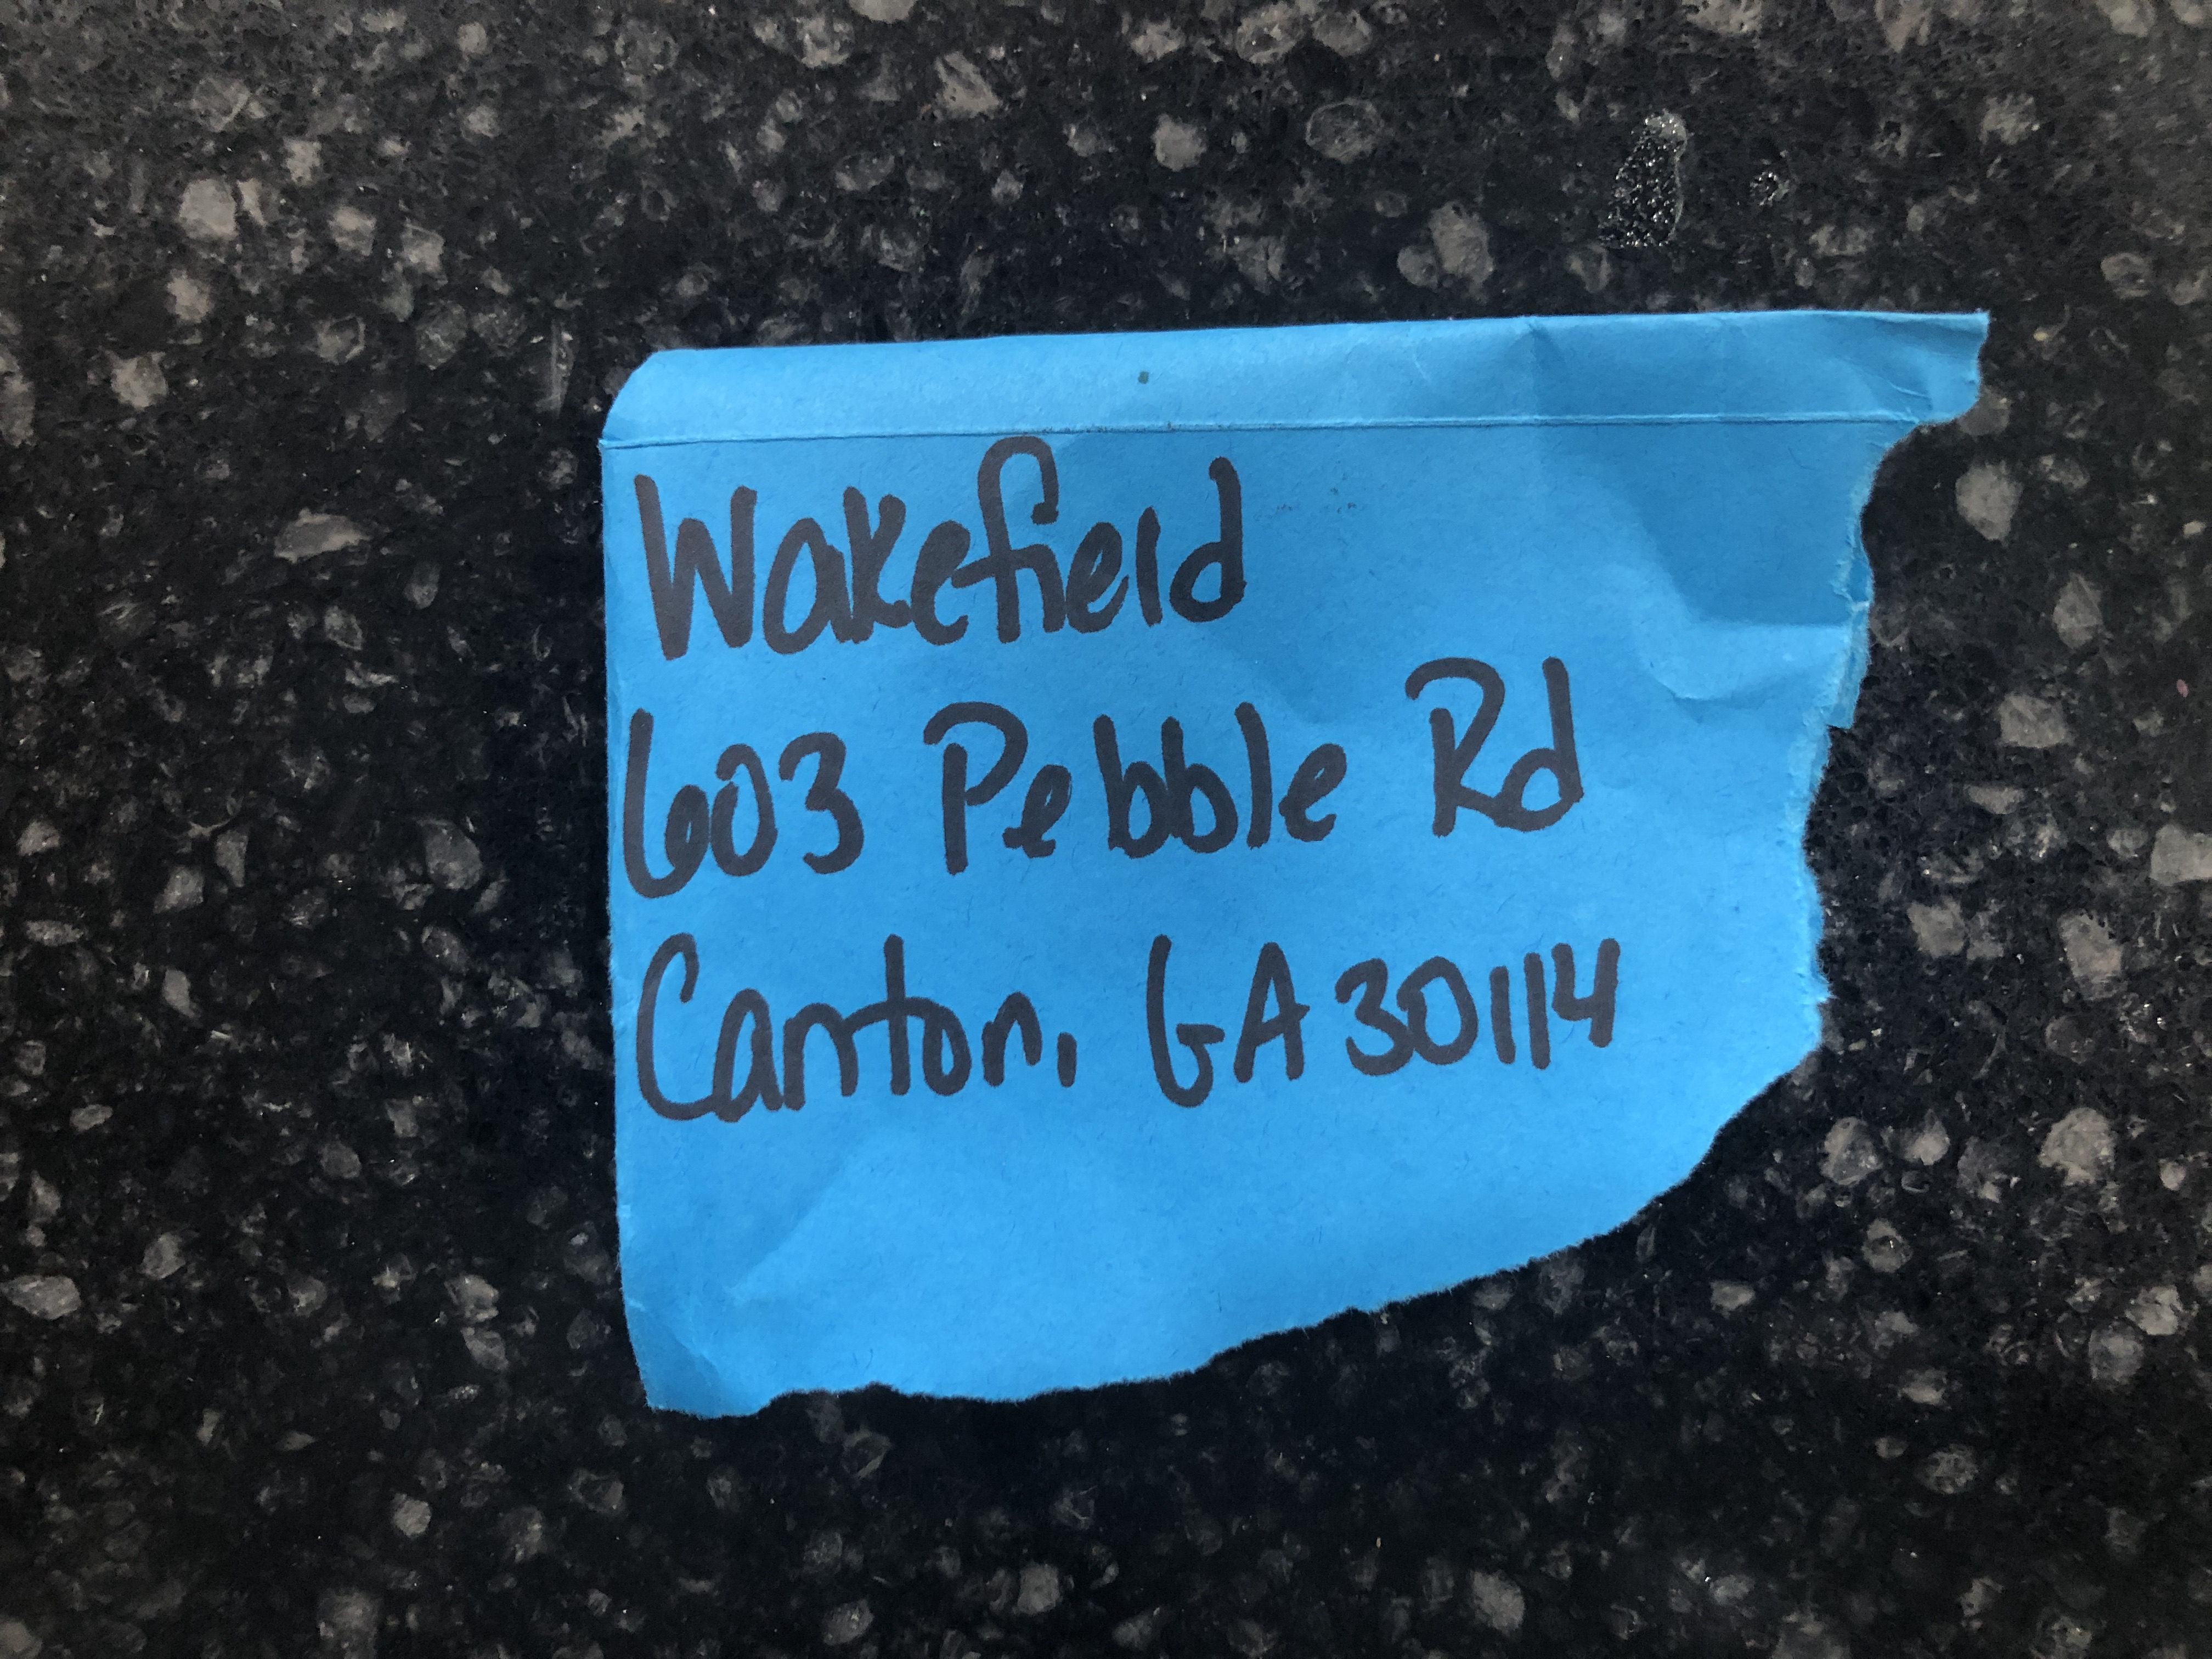 Wakefield
603 Pebble Rd
Canton, GA 30114